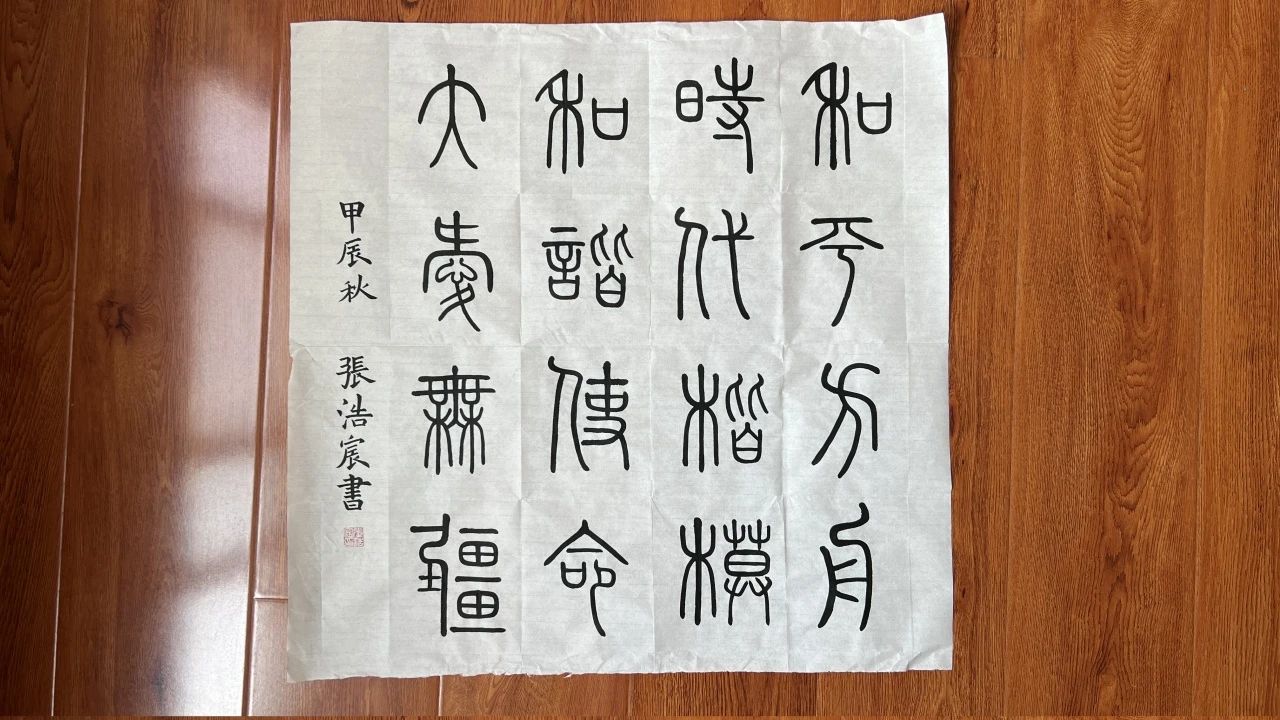 和平方舟
時代楷模
和諧使命
大愛無疆
甲辰秋 張浩宸書